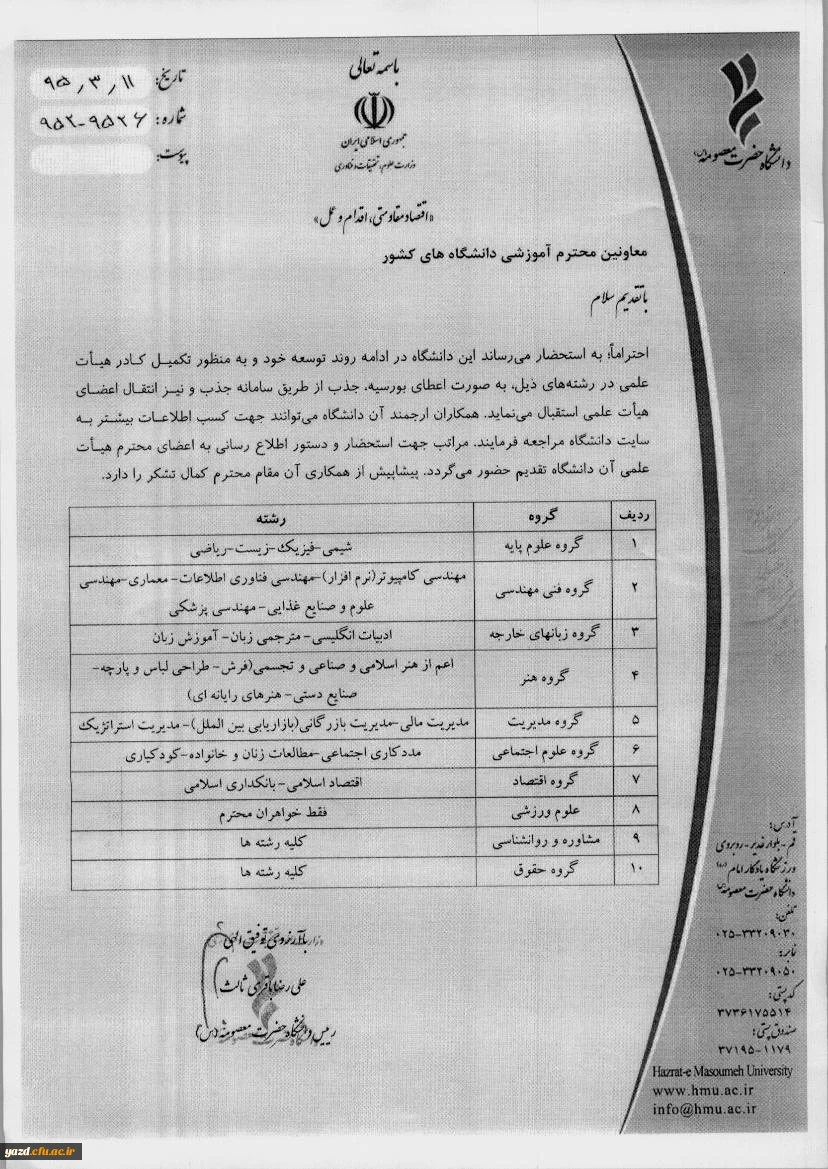 باسمه تعالی
جمهوری اسلامی ایران
وزارت علوم، تحقیقات و فناوری
تاریخ: ۹۵٫۳٫۱۱
شماره: ۹۵۲-۹۵۲۶
پیوست:
دانشگاه حضرت معصومه(س)
«اقتصاد مقاومتی، اقدام و عمل»
معاونین محترم آموزشی دانشگاه های کشور
با تقدیم سلام
احتراماً؛ به استحضار می‌رساند این دانشگاه در ادامه روند توسعه خود و به منظور تکمیل کادر هیأت
علمی در رشته‌های ذیل، به صورت اعطای بورسیه، جذب از طریق سامانه جذب و نیز انتقال اعضای
هیأت علمی استقبال می‌نماید. همکاران ارجمند آن دانشگاه می‌توانند جهت کسب اطلاعات بیشتر به
سایت دانشگاه مراجعه فرمایند. مراتب جهت استحضار و دستور اطلاع رسانی به اعضای محترم هیأت
علمی آن دانشگاه تقدیم حضور می‌گردد. پیشاپیش از همکاری آن مقام محترم کمال تشکر را دارد.
ردیف گروه رشته
۱ گروه علوم پایه شیمی-فیزیک-زیست-ریاضی
۲ گروه فنی مهندسی مهندسی کامپیوتر(نرم افزار)-مهندسی فناوری اطلاعات- معماری-مهندسی
علوم و صنایع غذایی-مهندسی پزشکی
۳ گروه زبانهای خارجه ادبیات انگلیسی- مترجمی زبان- آموزش زبان
۴ گروه هنر اعم از هنر اسلامی و صناعی و تجسمی(فرش- طراحی لباس و پارچه-
صنایع دستی- هنرهای رایانه ای)
۵ گروه مدیریت مدیریت مالی-مدیریت بازرگانی(بازاریابی بین الملل)-مدیریت استراتژیک
۶ گروه علوم اجتماعی مددکاری اجتماعی-مطالعات زنان و خانواده-کودکیاری
۷ گروه اقتصاد اقتصاد اسلامی-بانکداری اسلامی
۸ علوم ورزشی فقط خواهران محترم
۹ مشاوره و روانشناسی کلیه رشته ها
۱۰ گروه حقوق کلیه رشته ها
با آرزوی توفیق الهی
علی رضا باقری ثالث
رییس دانشگاه حضرت معصومه(س)
آدرس:
قم-بلوار غدیر-روبروی
ورزشگاه یادگار امام(ره)
دانشگاه حضرت معصومه(س)
تلفن:
۰۲۵-۳۳۲۰۹۰۳۰
نمابر:
۰۲۵-۳۳۲۰۹۰۵۰
کد پستی:
۳۷۳۶۱۷۵۵۱۴
صندوق پستی:
۳۷۱۹۵-۱۱۷۹
Hazrat-e Masoumeh University
www.hmu.ac.ir
info@hmu.ac.ir
yazd.cfu.ac.ir